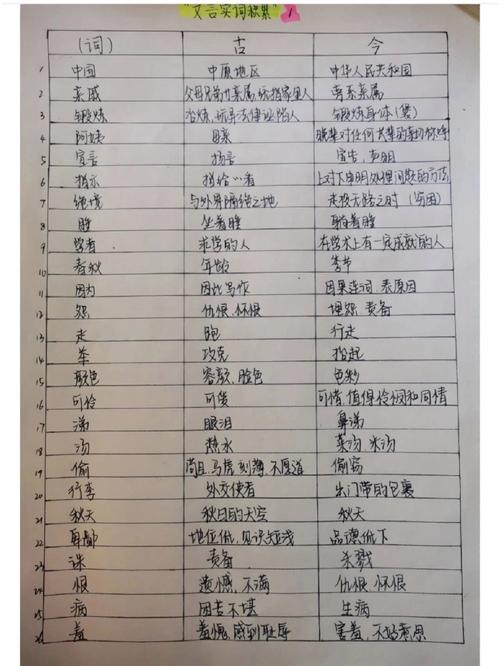 "文言实词积累" 1
(词) 古 今
1 中国 中原地区 中华人民共和国
2 亲戚 父母兄弟亲属,统指家里人 旁系亲属
3 锻炼 冶炼,玩弄法律诬陷人 锻炼身体(等)
4 阿姨 母亲
5 宣言 扬言 宣告,声明
6 指示 指给…看 上对下申明处理问题的方法
7 绝境 与外界隔绝之地 走投无路之时(穷困)
8 睡 坐着睡 躺着睡
9 学者 求学的人 在学术上有一定成就的人
10 春秋 年龄 季节
11 因为 因此写作 因果连词,表原因
12 怨 仇恨,怀恨 埋怨,责备
13 走 跑 行走
14 举 攻克 抬起
15 颜色 容颜,脸色 色彩
16 可怜 可爱 可惜,值得怜悯和同情
17 涕 眼泪 鼻涕
18 汤 热水 菜汤,米汤
19 偷 苟且,马虎,刻薄,不厚道 偷窃
20 行李 外交使者 出门带的包裹
21 秋天 秋日的天空 秋天
22 卑鄙 地位低,见识短浅 品德低下
23 诛 责备 杀戮
24 恨 遗憾,不满 仇恨,怀恨
25 病 困苦不堪 生病
26 羞 羞愧,感到耻辱 害羞,不好意思